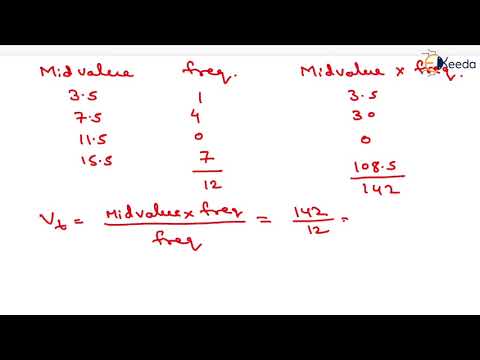 Keeda
Midvalue freq. Midvalue x freq.
3.5 1 3.5
7.5 4 30
11.5 0 0
15.5 7 108.5
12 142
Vt = Midvalue x freq / freq = 142 / 12 =